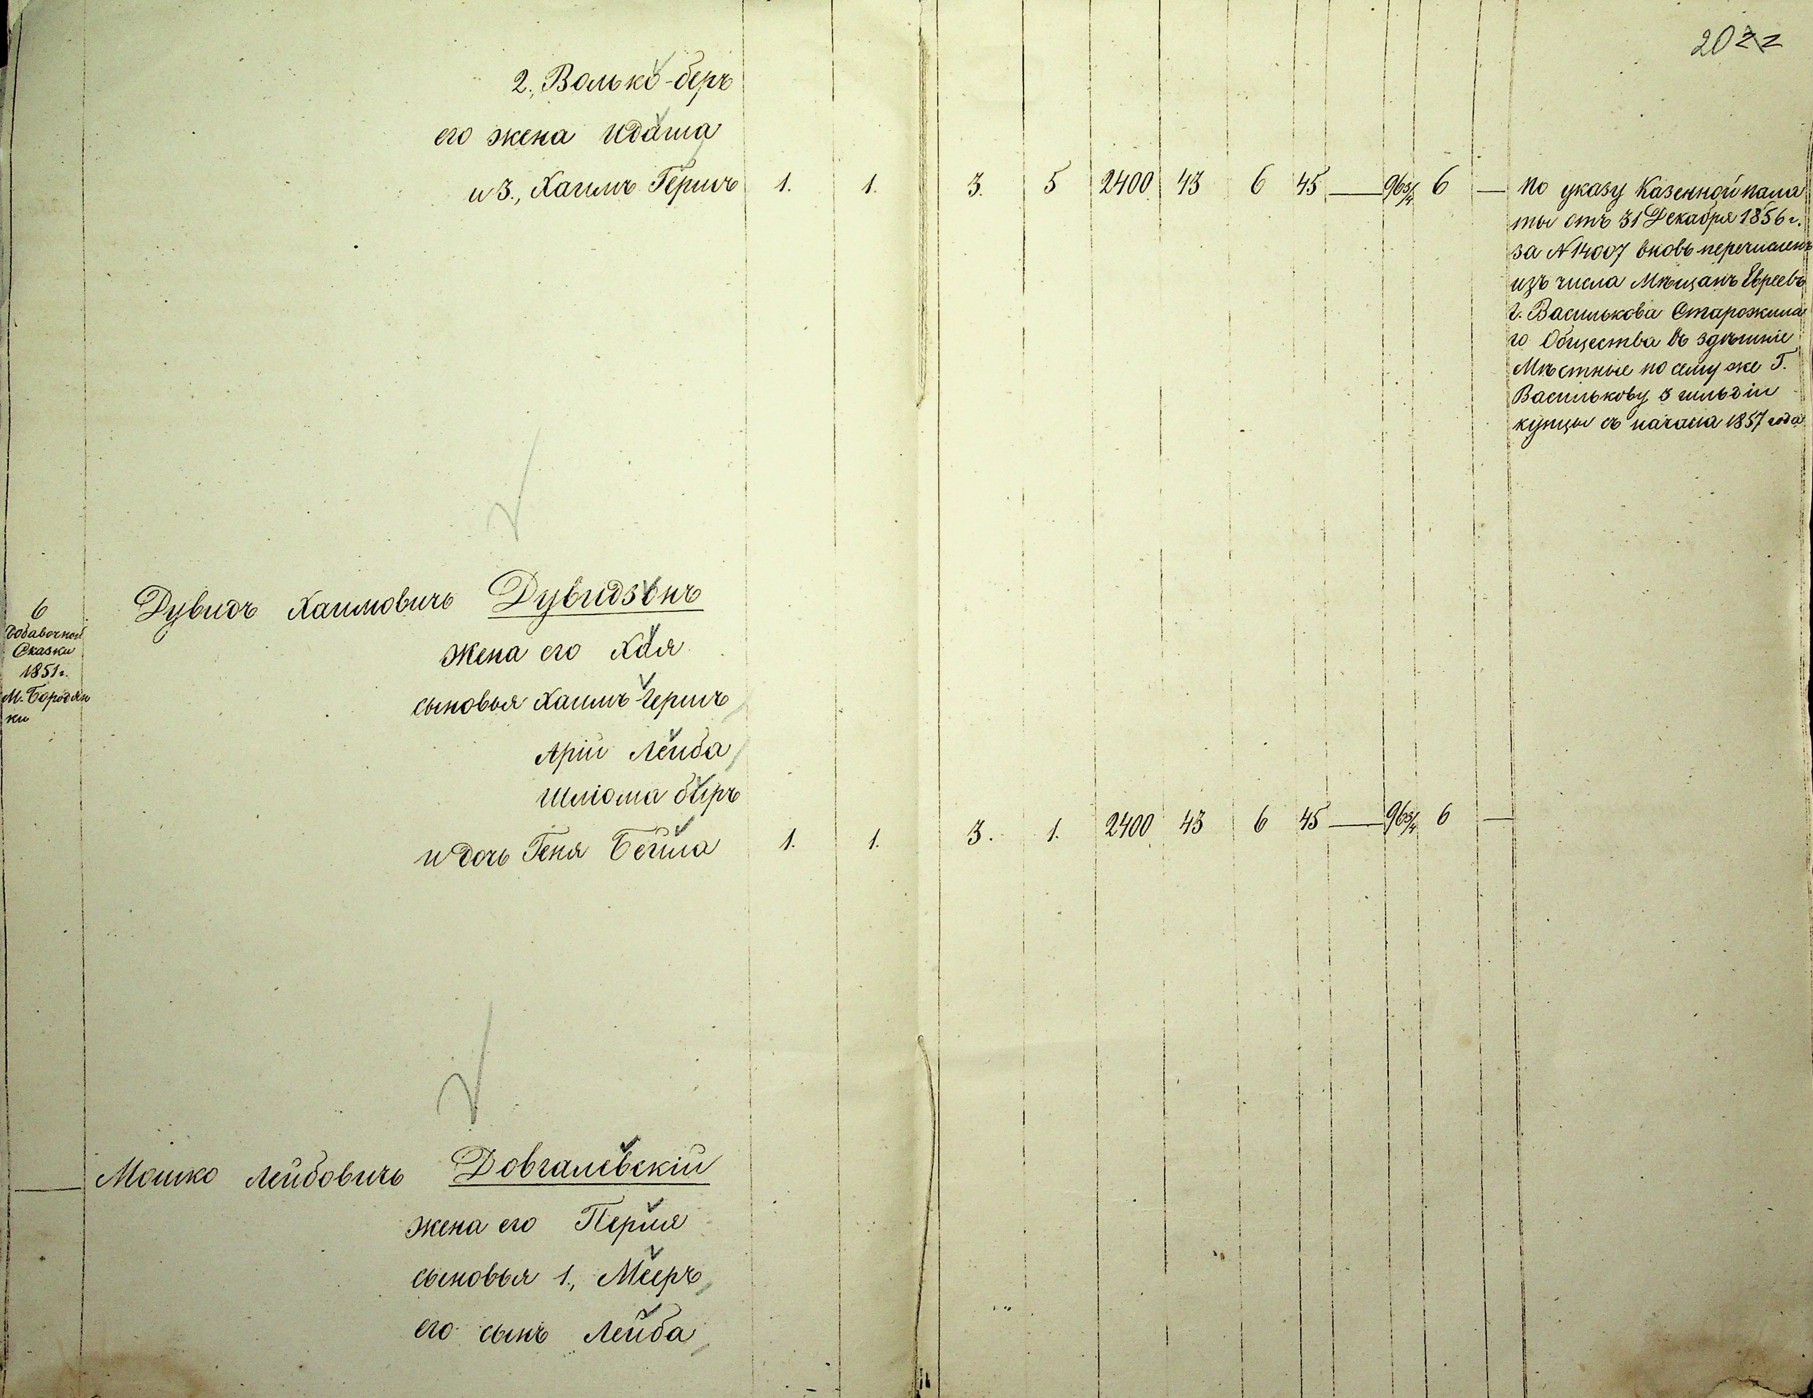 20
2., Волько-беръ
его жена Идаша
и 3., Хаимъ Гершъ 1. 1. 3. 5 2400 43 6 45 — 96 3/4 6 —
по указу Казенной пала
ты отъ 31 Декабря 1856 г.
за N 14007 вновь перечисленъ
изъ числа Мѣщанъ Евреевъ
г. Василькова Старожила
го Общества въ здѣшніе
Мѣстные по сему же Г.
Василькову 3 гильдіи
купцы съ начала 1857 года
6
добавочной
Сказки
1851 г.
М. Бородян
ки
Дувидъ Хаимовичъ Дувидзонъ
жена его Хая
сыновья Хаимъ Гершъ
Арій Лейба
Шліома беръ
и дочь Геня Бейла 1. 1. 3. 1. 2400 43 6 45 — 96 3/4 6 —
— Мошко Лейбовичъ Довгалевскій
жена его Перля
сыновья 1., Мееръ
его сынъ Лейба